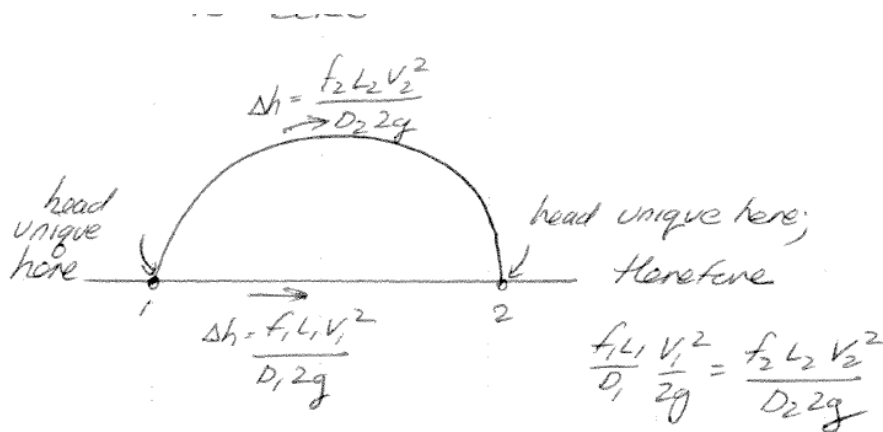 Δh = f₂ L₂ V₂² / D₂ 2g
head unique here
head unique here;
therefore
1
2
Δh = f₁ L₁ V₁² / D₁ 2g
f₁ L₁ / D₁ V₁² / 2g = f₂ L₂ V₂² / D₂ 2g